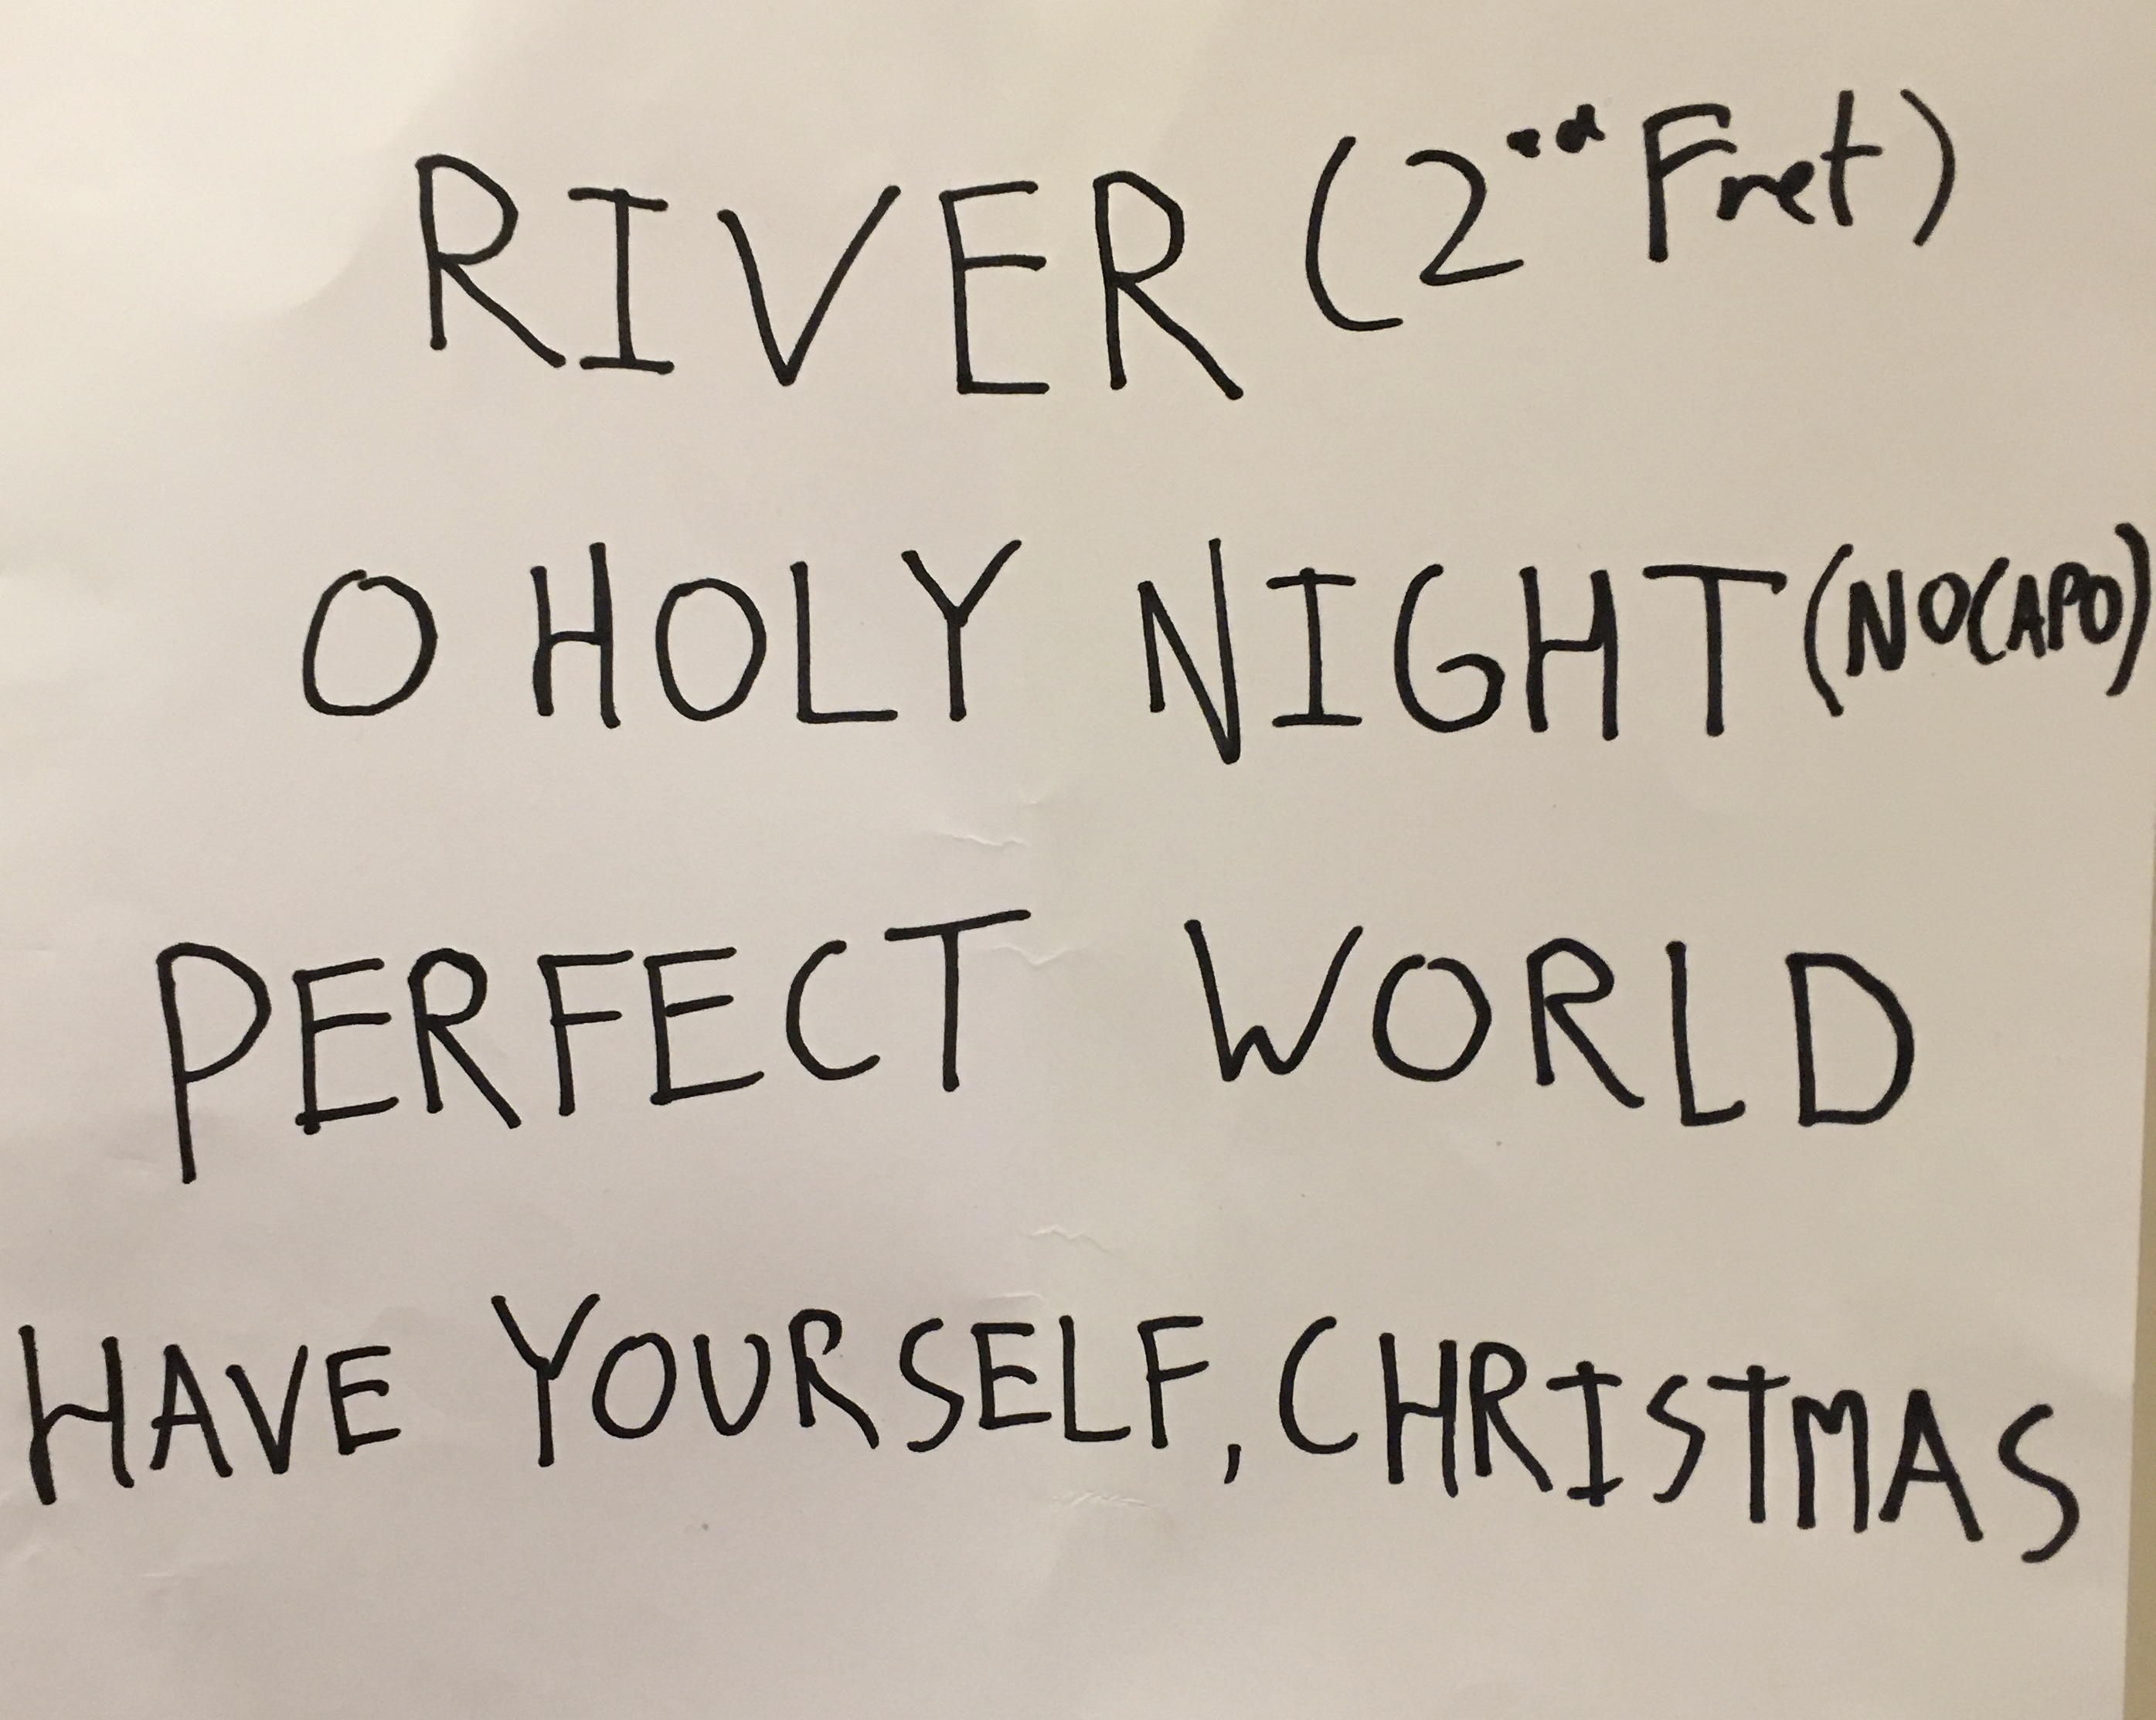 RIVER (2nd Fret)
O HOLY NIGHT (NO CAPO)
PERFECT WORLD
HAVE YOURSELF, CHRISTMAS